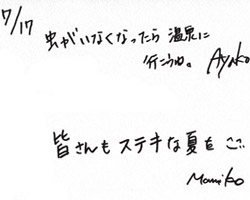 7/17
虫がいなくなったら 温泉に
行こうね。 Ayako
皆さんも ステキな夏を
Mamiko